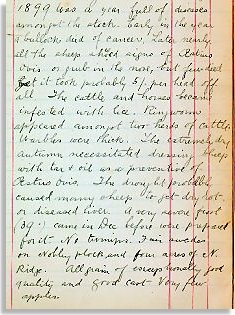 1899 was a year full of diseases
amongst the stock. Early in the year
a bullock died of cancer. Later nearly
all the sheep showed signs of Estrus
Ovis or grub in the nose, but few died
yet it took probably 5/- per head off
all. The cattle and horses became
infested with lice. Ringworm
appeared amongst two herds of cattle.
Warbles were thick. The extremely dry
autumn necessitated dressing sheep
with tar & oil as a preventive of
Estrus Ovis. The drought probably
caused many sheep to get
or diseased liver. A very severe frost
(39°) came in Dec before were prepared
for it. No turnips. Fair swedes
on Nobby block and four acres of N.
Ridge. All grain of exceptionally good
quality and good cast Very few
apples